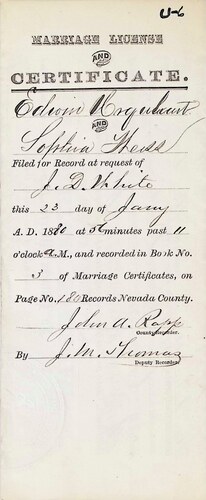 U-6
MARRIAGE LICENSE
AND
CERTIFICATE.
Edwin Urquhart
AND
Sophia Theiss
Filed for Record at request of
J. D. White
this 23 day of Jany
A. D. 1880 at 50 minutes past 11
o'clock a M., and recorded in Book No.
3 of Marriage Certificates, on
Page No. 180 Records Nevada County.
John A. Rapp
County Recorder.
By J. M. Thomas
Deputy Recorder.